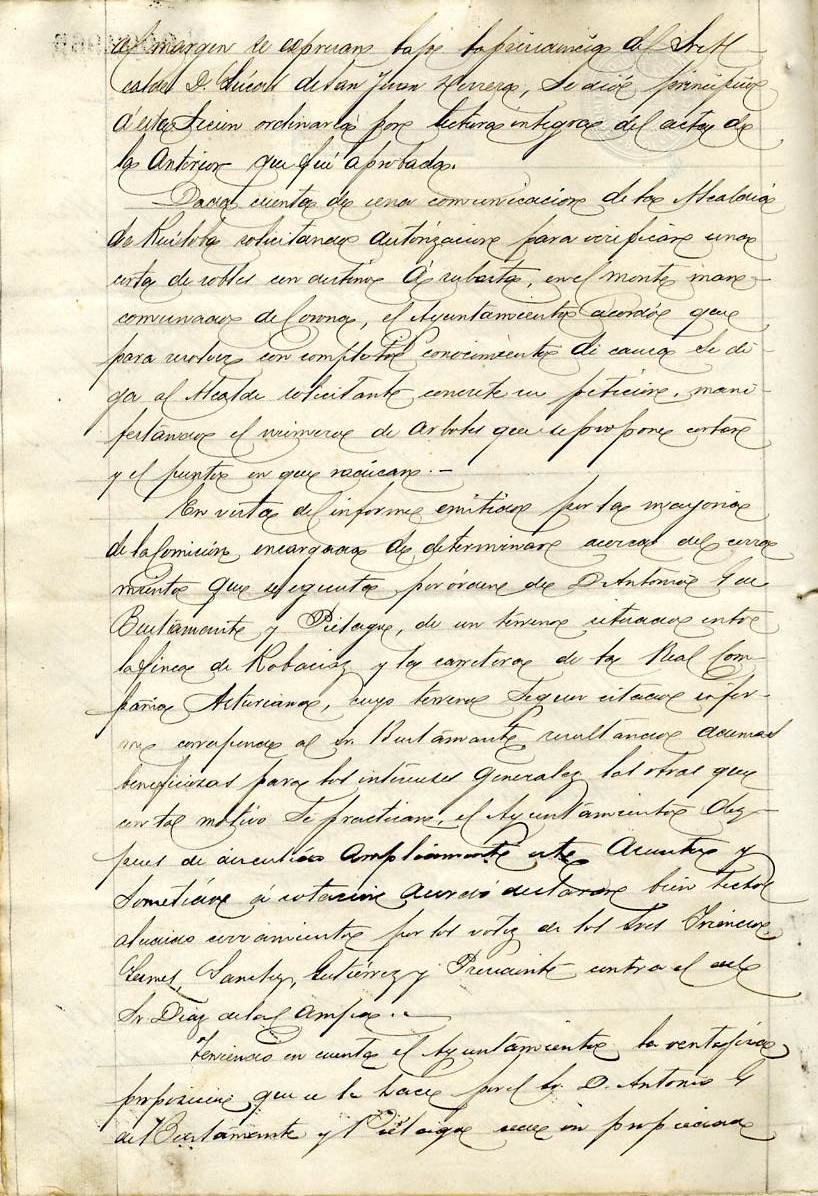 al margen se espresan bajo la presidencia del Sr. Al-
calde D. de San Juan Herrera, se dió principio
á esta sesion ordinaria por lectura integra del acta de
la Anterior que fué aprobada.
Dada cuenta de una comunicacion de la Alcaldia
de Ruiloba solicitando autorizacion para verificar una
corta de robles con destino á subasta, en el monte man-
comunado de Corona, el Ayuntamiento acordó que
para resolver con completo conocimiento de causa se di-
ga al Alcalde solicitante concrete su peticion, mani-
festando el número de arboles que se propone cortar
y el punto en que radican.-
En vista del informe emitido por la mayoria
de la Comision encargada de determinar acerca del cerra
miento que se ejecuta por órden de D. Antonio G de
Bustamante y Piélago, de un terreno situado entre
la finca de Robacias y la carretera de la Real Com-
pañia Asturiana, cuyo terreno segun citado infor-
me corresponde al Sr. Bustamante resultando ademas
beneficiosas para los intereses generales las obras que
con tal motivo se practican, el Ayuntamiento des-
pues de discutido ampliamente este asunto y
sometido á votacion acordó declarar bien hecho
aludido cerramiento por los votos de los Sres
Sanchez, Gutiérrez y Presidente contra el del
Sr. Diaz de la Campa.-
Teniendo en cuenta el Ayuntamiento la ventajosa
proposicion que se le hace por el Sr. D. Antonio G
de Bustamante y Piélago en propiedad